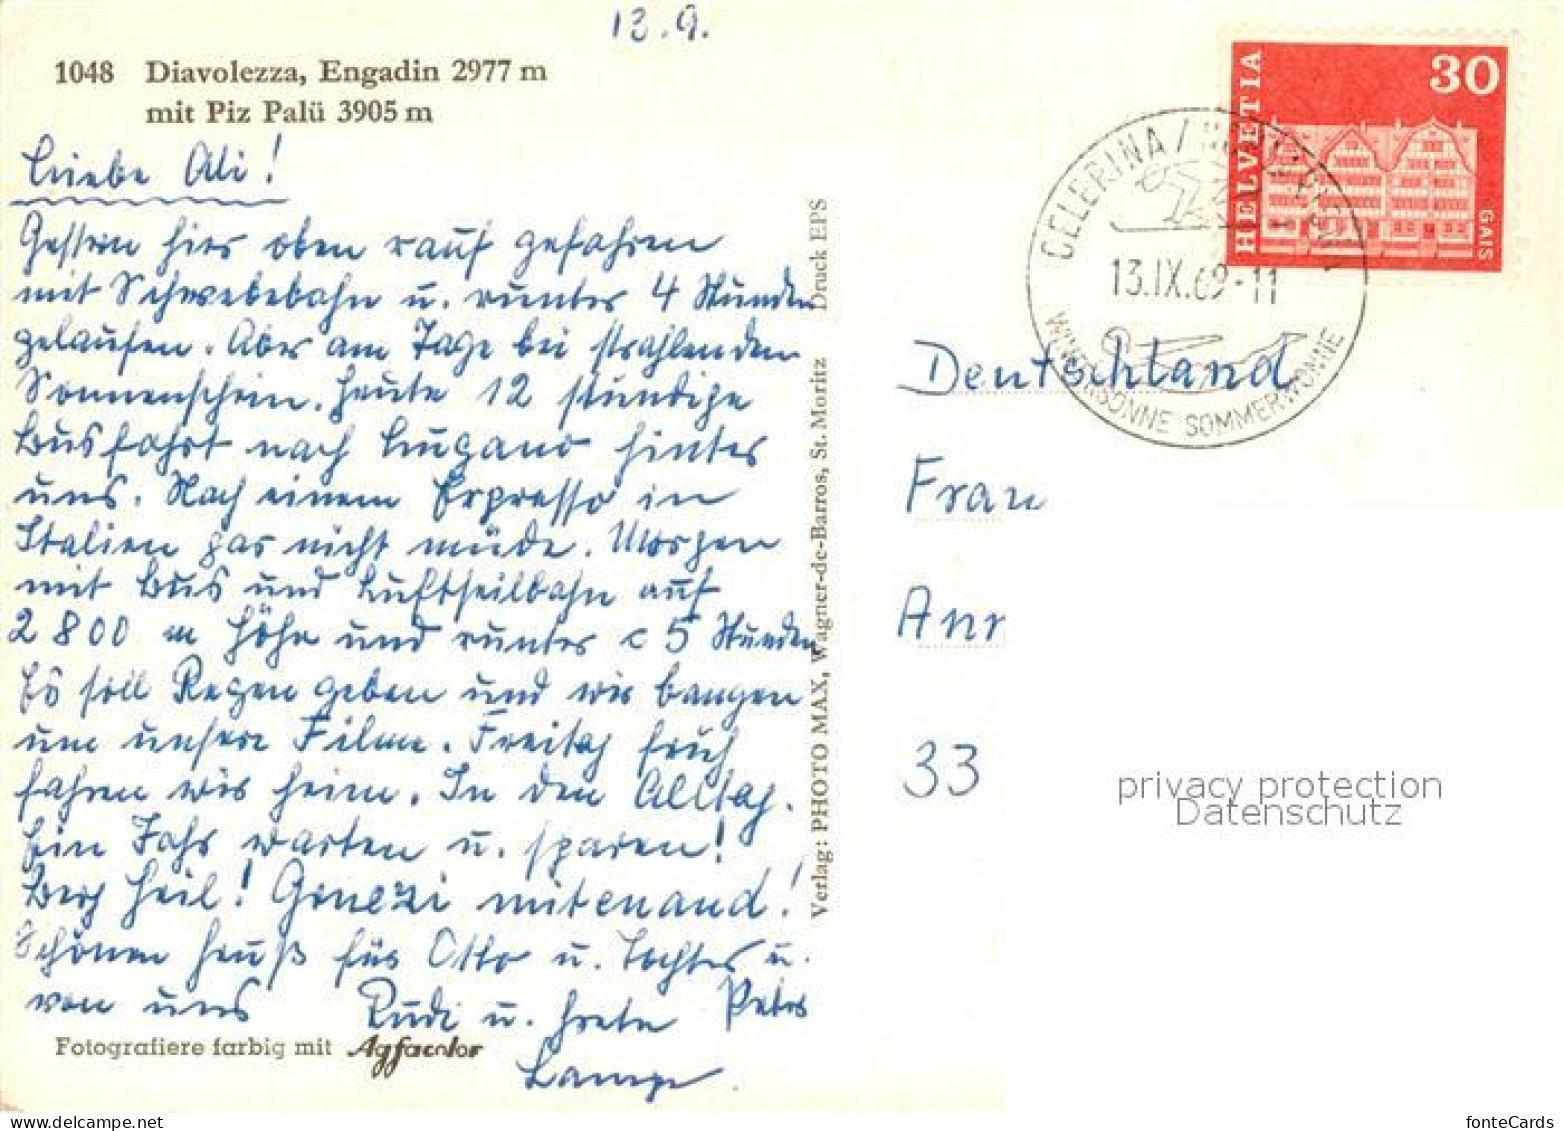 13.9.
1048 Diavolezza, Engadin 2977 m
mit Piz Palü 3905 m
Liebe Alli!
Gestern hier oben rauf gefahren
mit Schwebebahn u. runter 4 Stunden
gelaufen. Aber am Tage bei strahlendem
Sonnenschein. Heute 12 stündige
Busfahrt nach Lugano hinter
uns. Nach einem Expresso in
Italien gar nicht müde. Morgen
mit Bus und Luftseilbahn auf
2800 m Höhe und runter c 5 Stunden
Es soll Regen geben und wir bangen
um unsere Filme. Freitag früh
fahren wir heim. In den Alltag.
Ein Jahr warten u. sparen!
Berg Heil! Gruezi mitenand!
Schönen Gruß für Otto u. Tochter u. Peter
von uns Rudi u. Grete
Lampe
Fotografiere farbig mit Agfacolor
Verlag: PHOTO MAX, Wagner-de-Barros, St. Moritz Druck EPS
HELVETIA
30
GAIS
CELERINA /
13.IX.69-11
WINTERSONNE SOMMERWONNE
Deutschland
Frau
Ann
33
privacy protection
Datenschutz
fonteCards